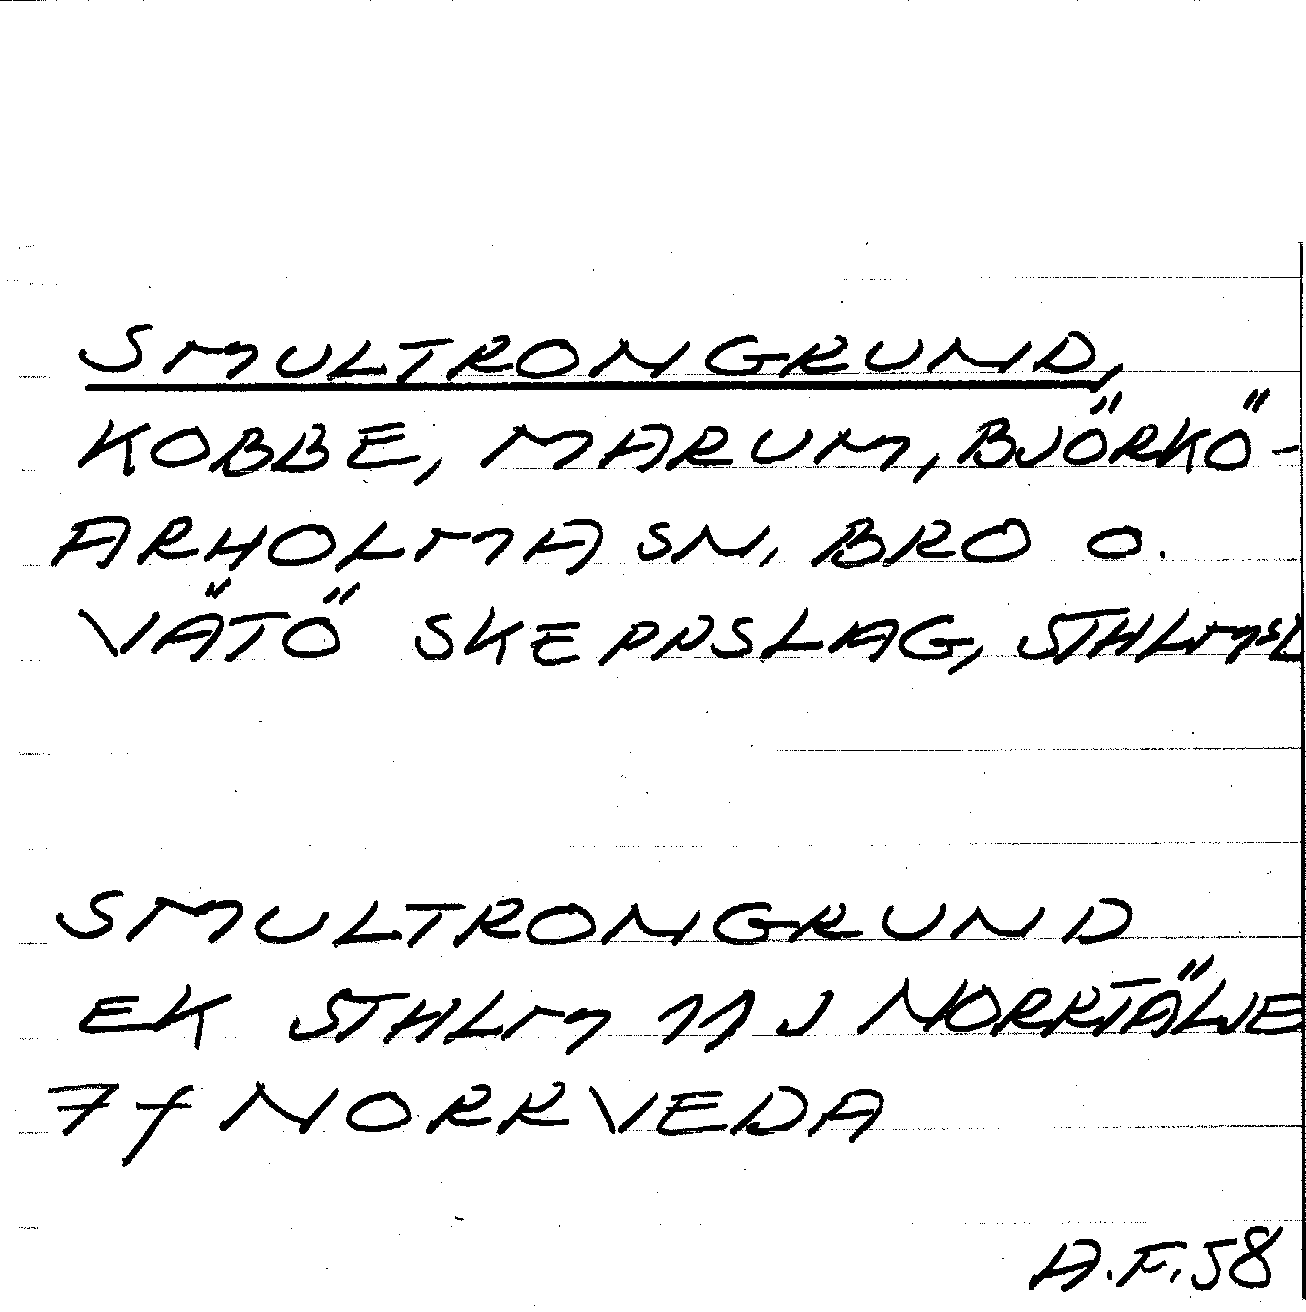 SMULTRONGRUND,
KOBBE, MARUM, BJÖRKÖ-
ARHOLMA SN, BRO O.
VÄTÖ SKEPPSLAG, STHLMSL
SMULTRONGRUND
EK STHLM 11 J NORRTÄLJE
7f NORRVEDA
A.F.58